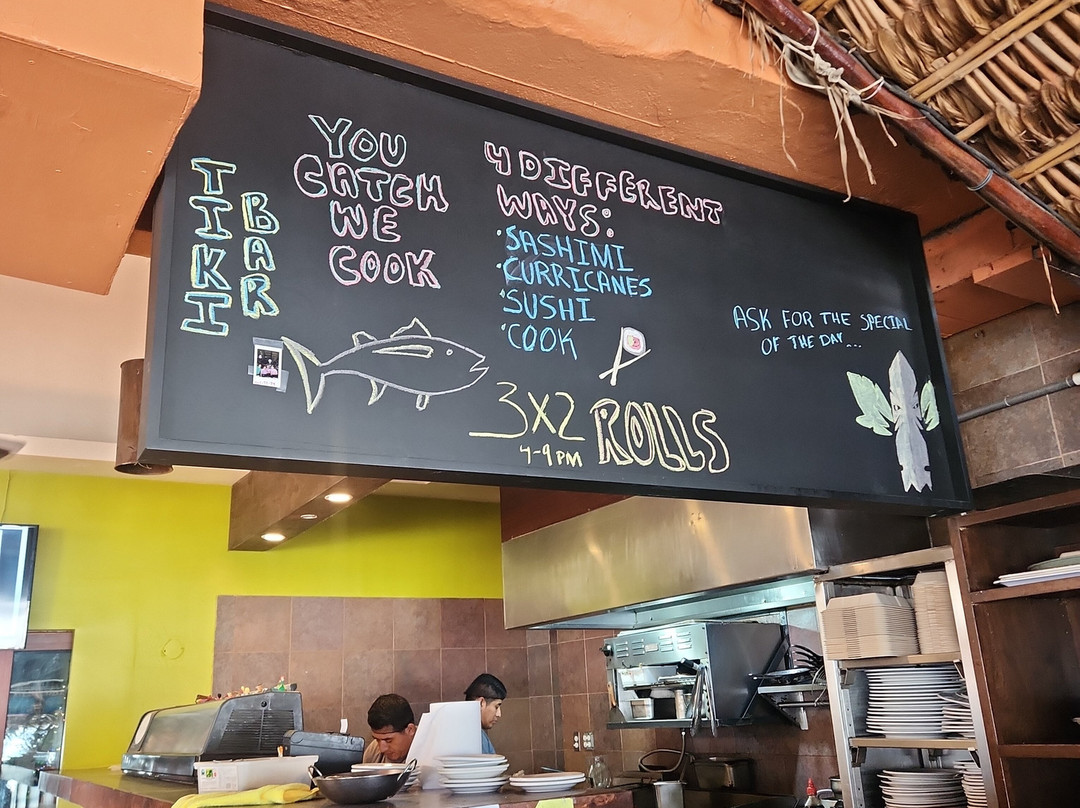 TIKI
BAR
YOU
CATCH
WE
COOK
4 DIFFERENT
WAYS:
·SASHIMI
·CURRICANES
·SUSHI
·COOK
3X2 ROLLS
4-9PM
ASK FOR THE SPECIAL
OF THE DAY...